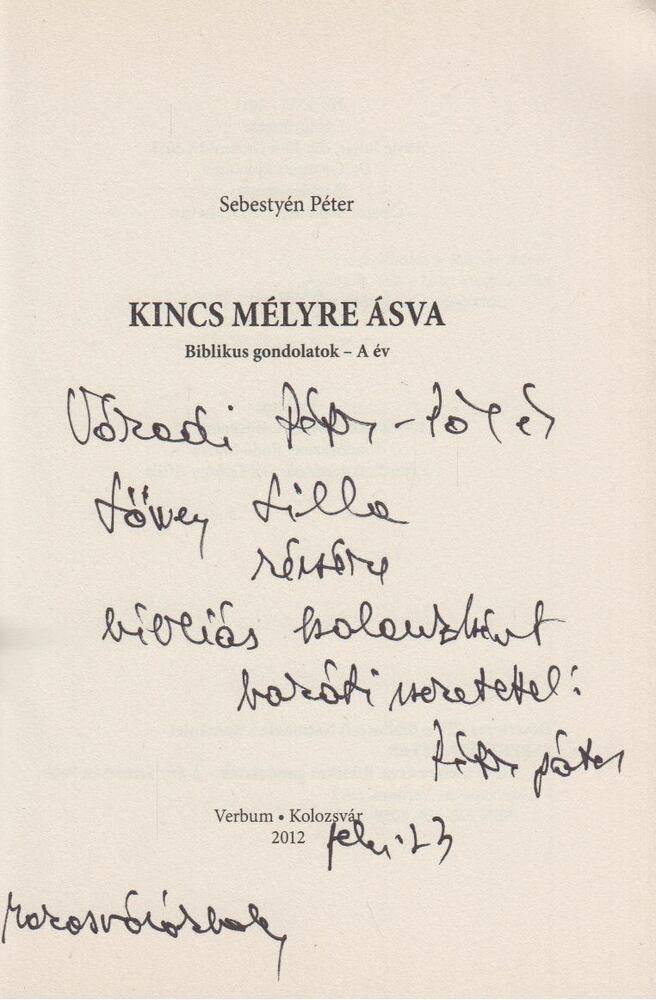 Sebestyén Péter
KINCS MÉLYRE ÁSVA
Biblikus gondolatok – A év
Váradi Péter-Pál és
Lőwey Lilla
részére
bibliás kalauzként
baráti szeretettel:
Péter páter
Verbum • Kolozsvár
2012 febr. 23
Marosvásárhely